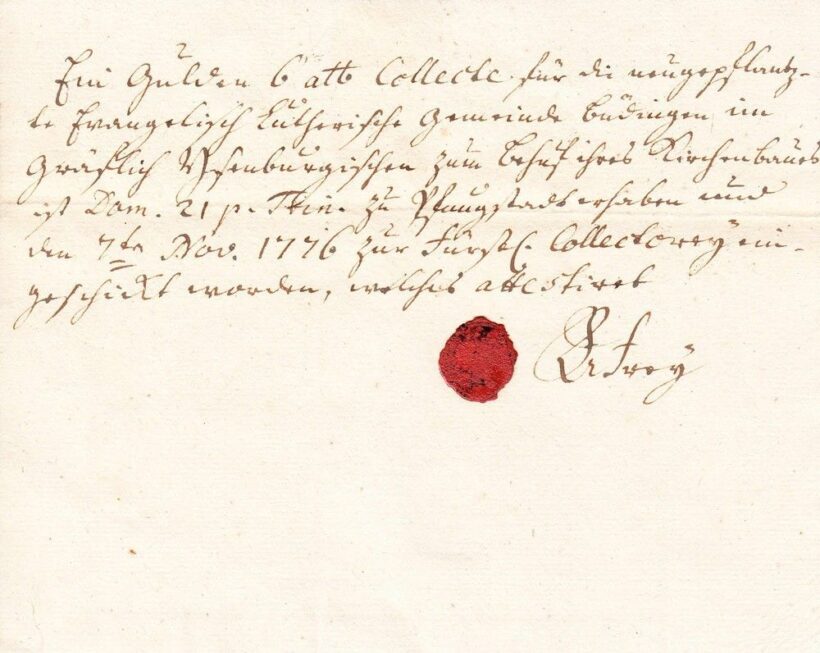 Ein Gulden 6 alb Collecte für die neugepflantz-
te Evangelisch Lutherische Gemeinde Büdingen im
Gräflich Ysenburgischen zum Behuf ihres Kirchenbaues
ist Dom. 21 p. Trin. zu Pfungstadt erhaben und
den 7te Nov. 1776 zur Fürstl. Collectorey ein-
geschickt worden, welches attestiret
Frey